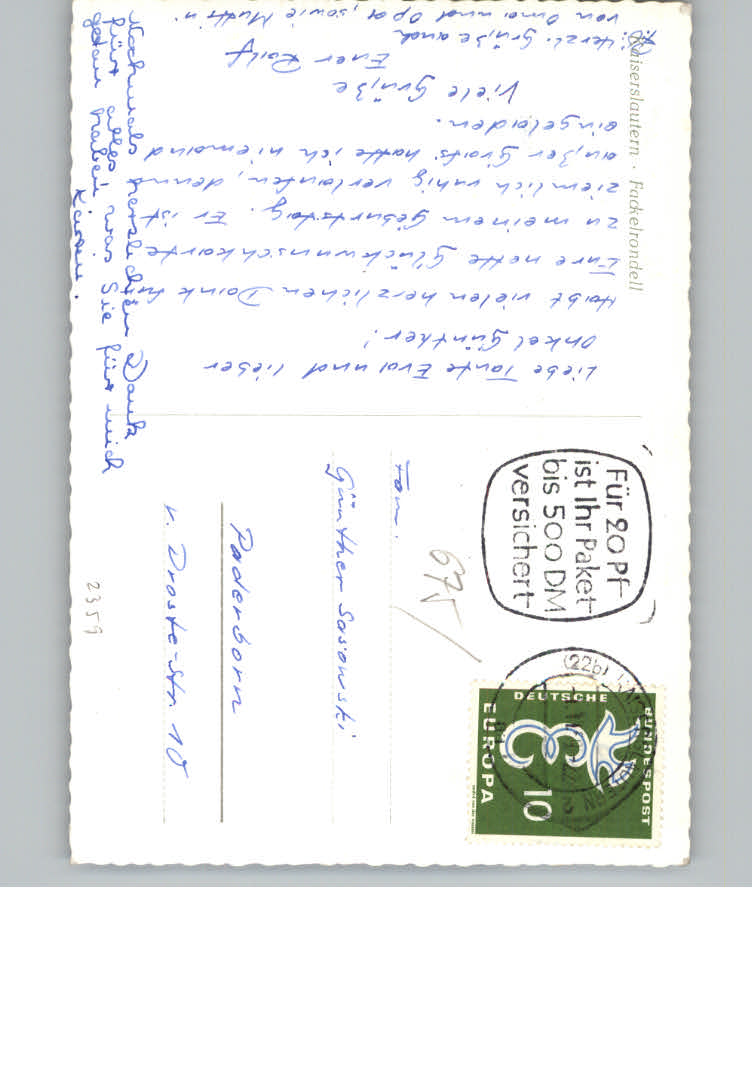 Kaiserslautern · Fackelrondell
Liebe Tante Eva und lieber
Onkel Günther!
Habt vielen herzlichen Dank für
Eure nette Glückwunschkarte
zu meinem Geburtstag. Er ist
ziemlich ruhig verlaufen, denn
außer Groits. hatte ich niemand
eingeladen.
Viele Grüße
Euer Ralf
Herzl. Grüße auch
von Oma und Opa, sowie Mutti
Nochmals herzlichen Dank
für alles was Sie für mich
getan haben
Für 20 Pf
ist Ihr Paket
bis 500 DM
versichert
(22b)
DEUTSCHE
BUNDESPOST
EUROPA
10
675
Fam.
Günther Sasowski
Paderborn
v. Droste-Str. 10
2359